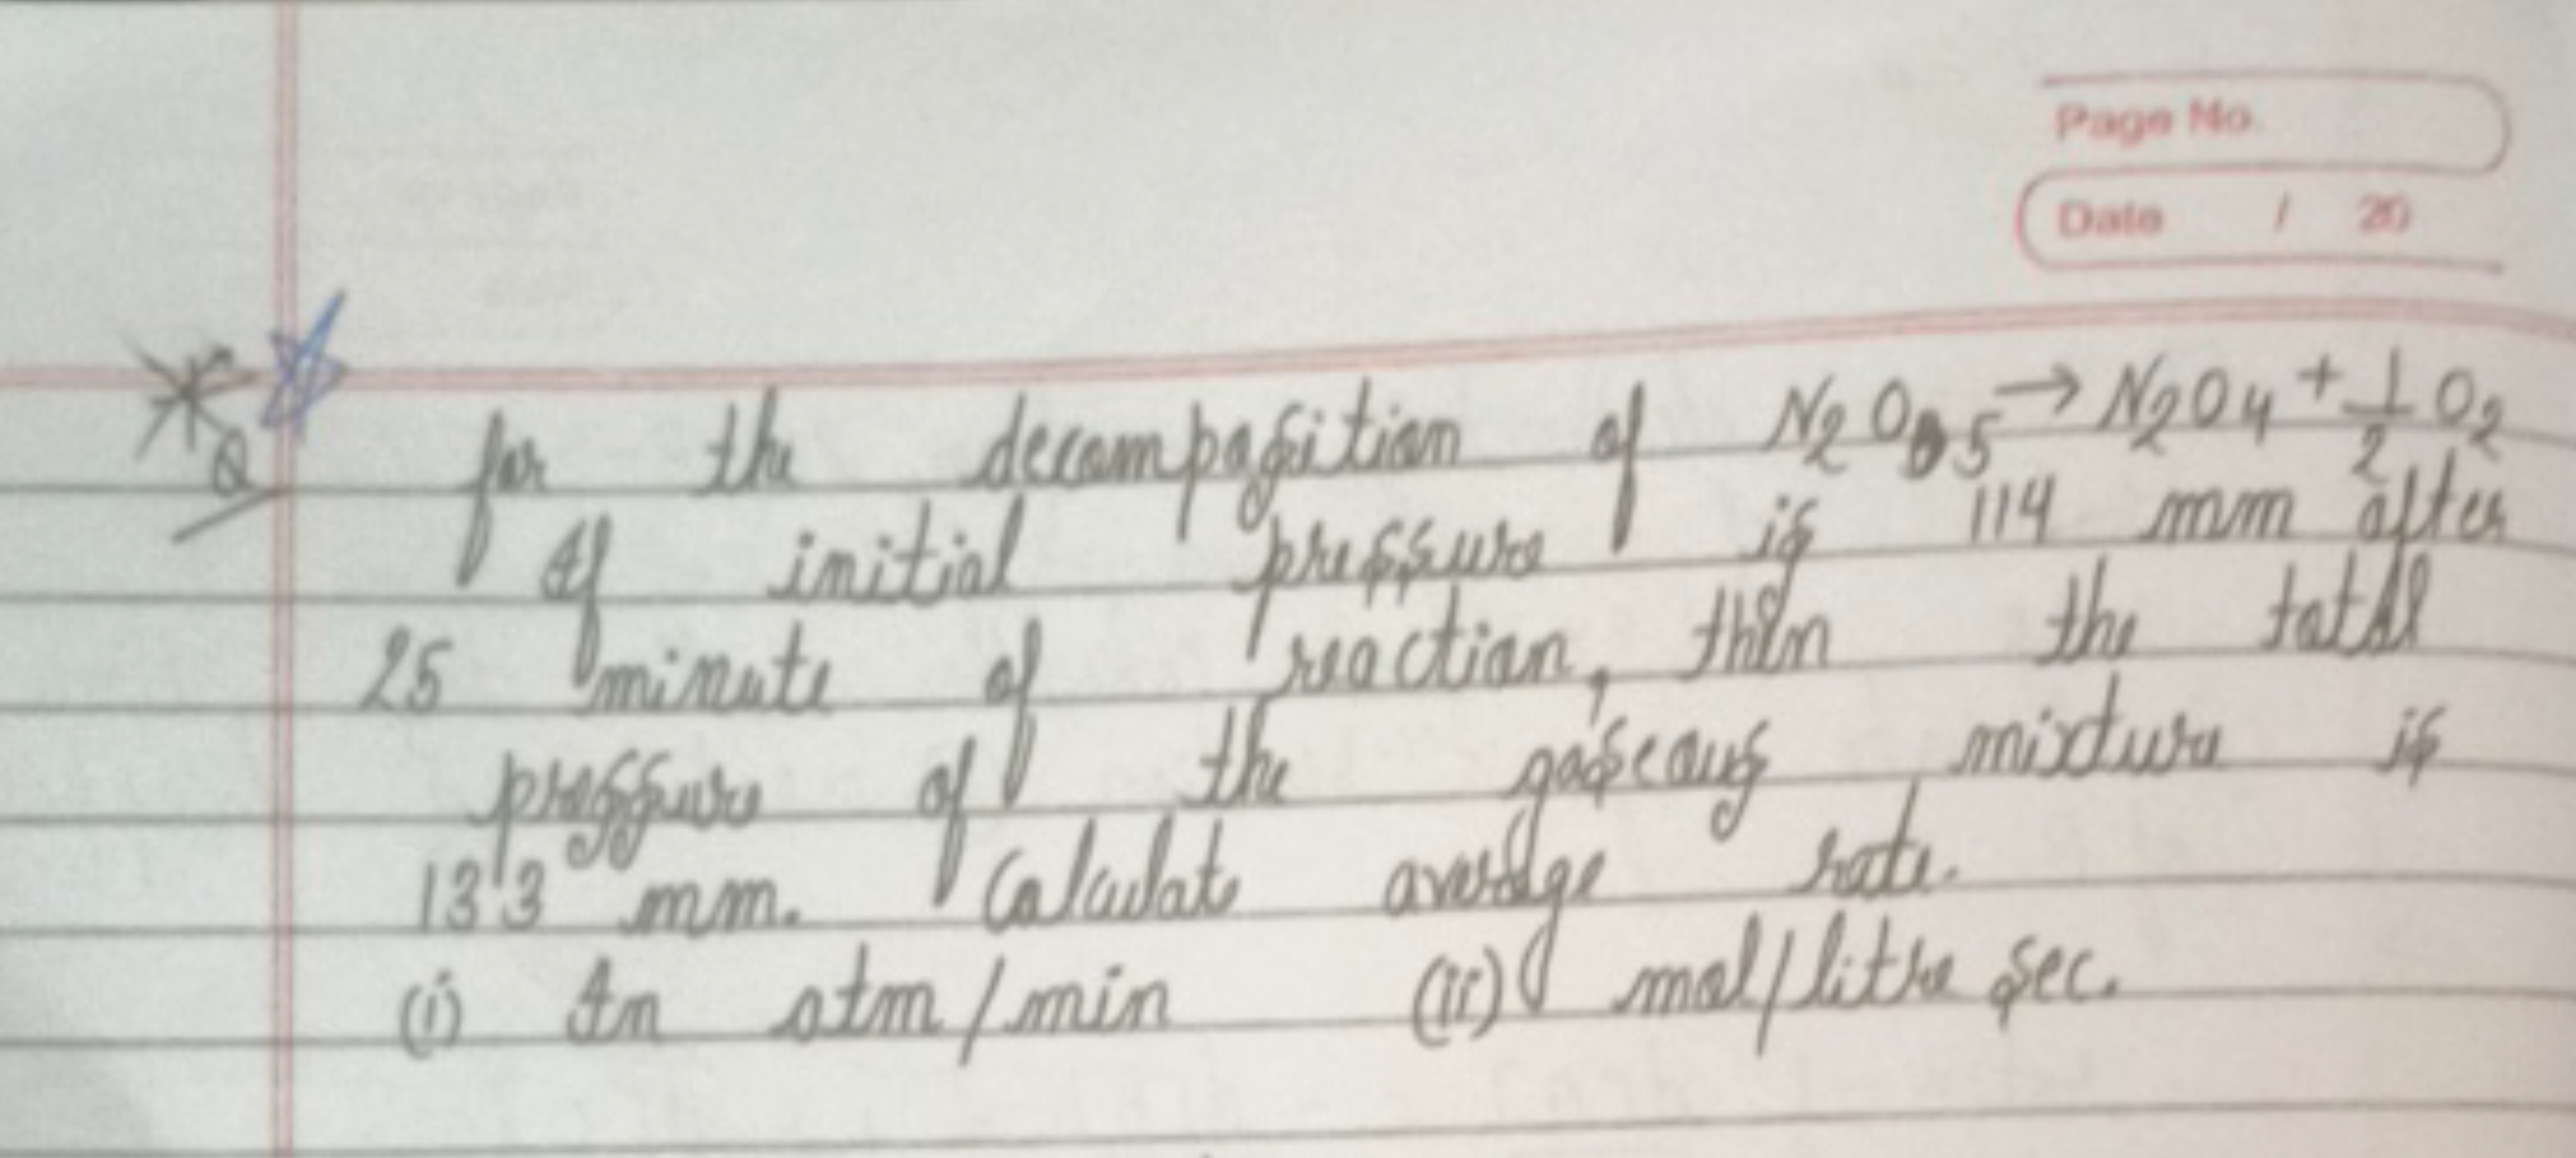 Page No.
Date / 20
Q for the decomposition of N2O5 → N2O4 + 1/2 O2
If initial pressure is 114 mm after
25 minute of reaction, then the total
pressure of the gaseous mixture is
133 mm. Calculate average rate.
(i) In atm/min (ii) mol/litre sec.